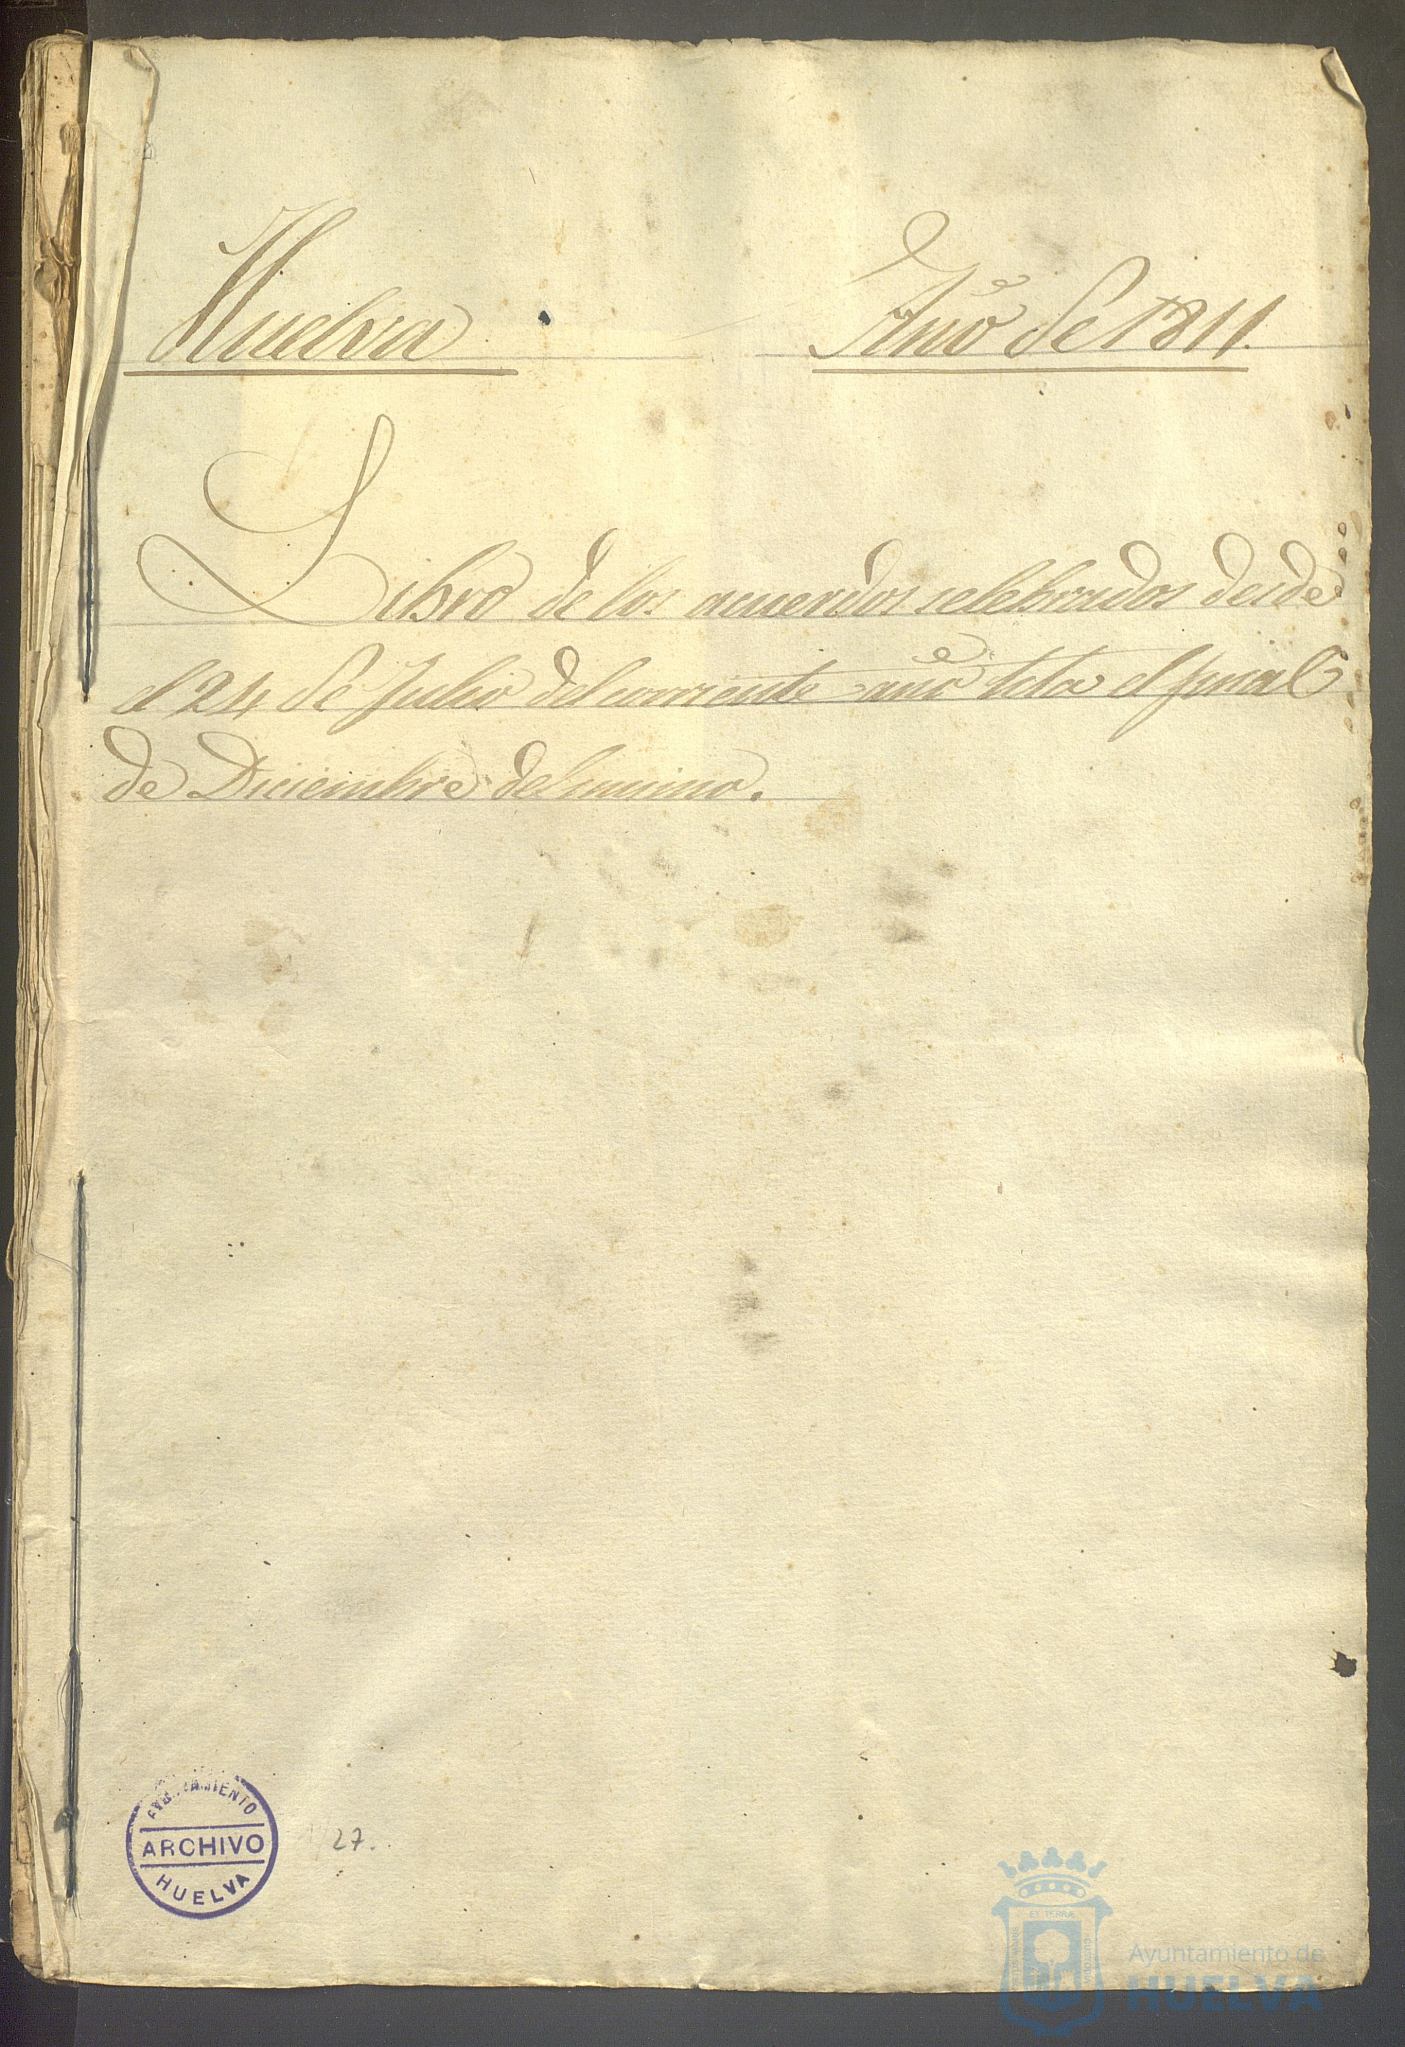 Huelva Año de 1811.
Libro de los acuerdos celebrados desde
el 24 de Julio del corriente año hta el final
de Diciembre del mismo.
AYUNTAMIENTO
ARCHIVO
HUELVA
27.
Ayuntamiento de
HUELVA